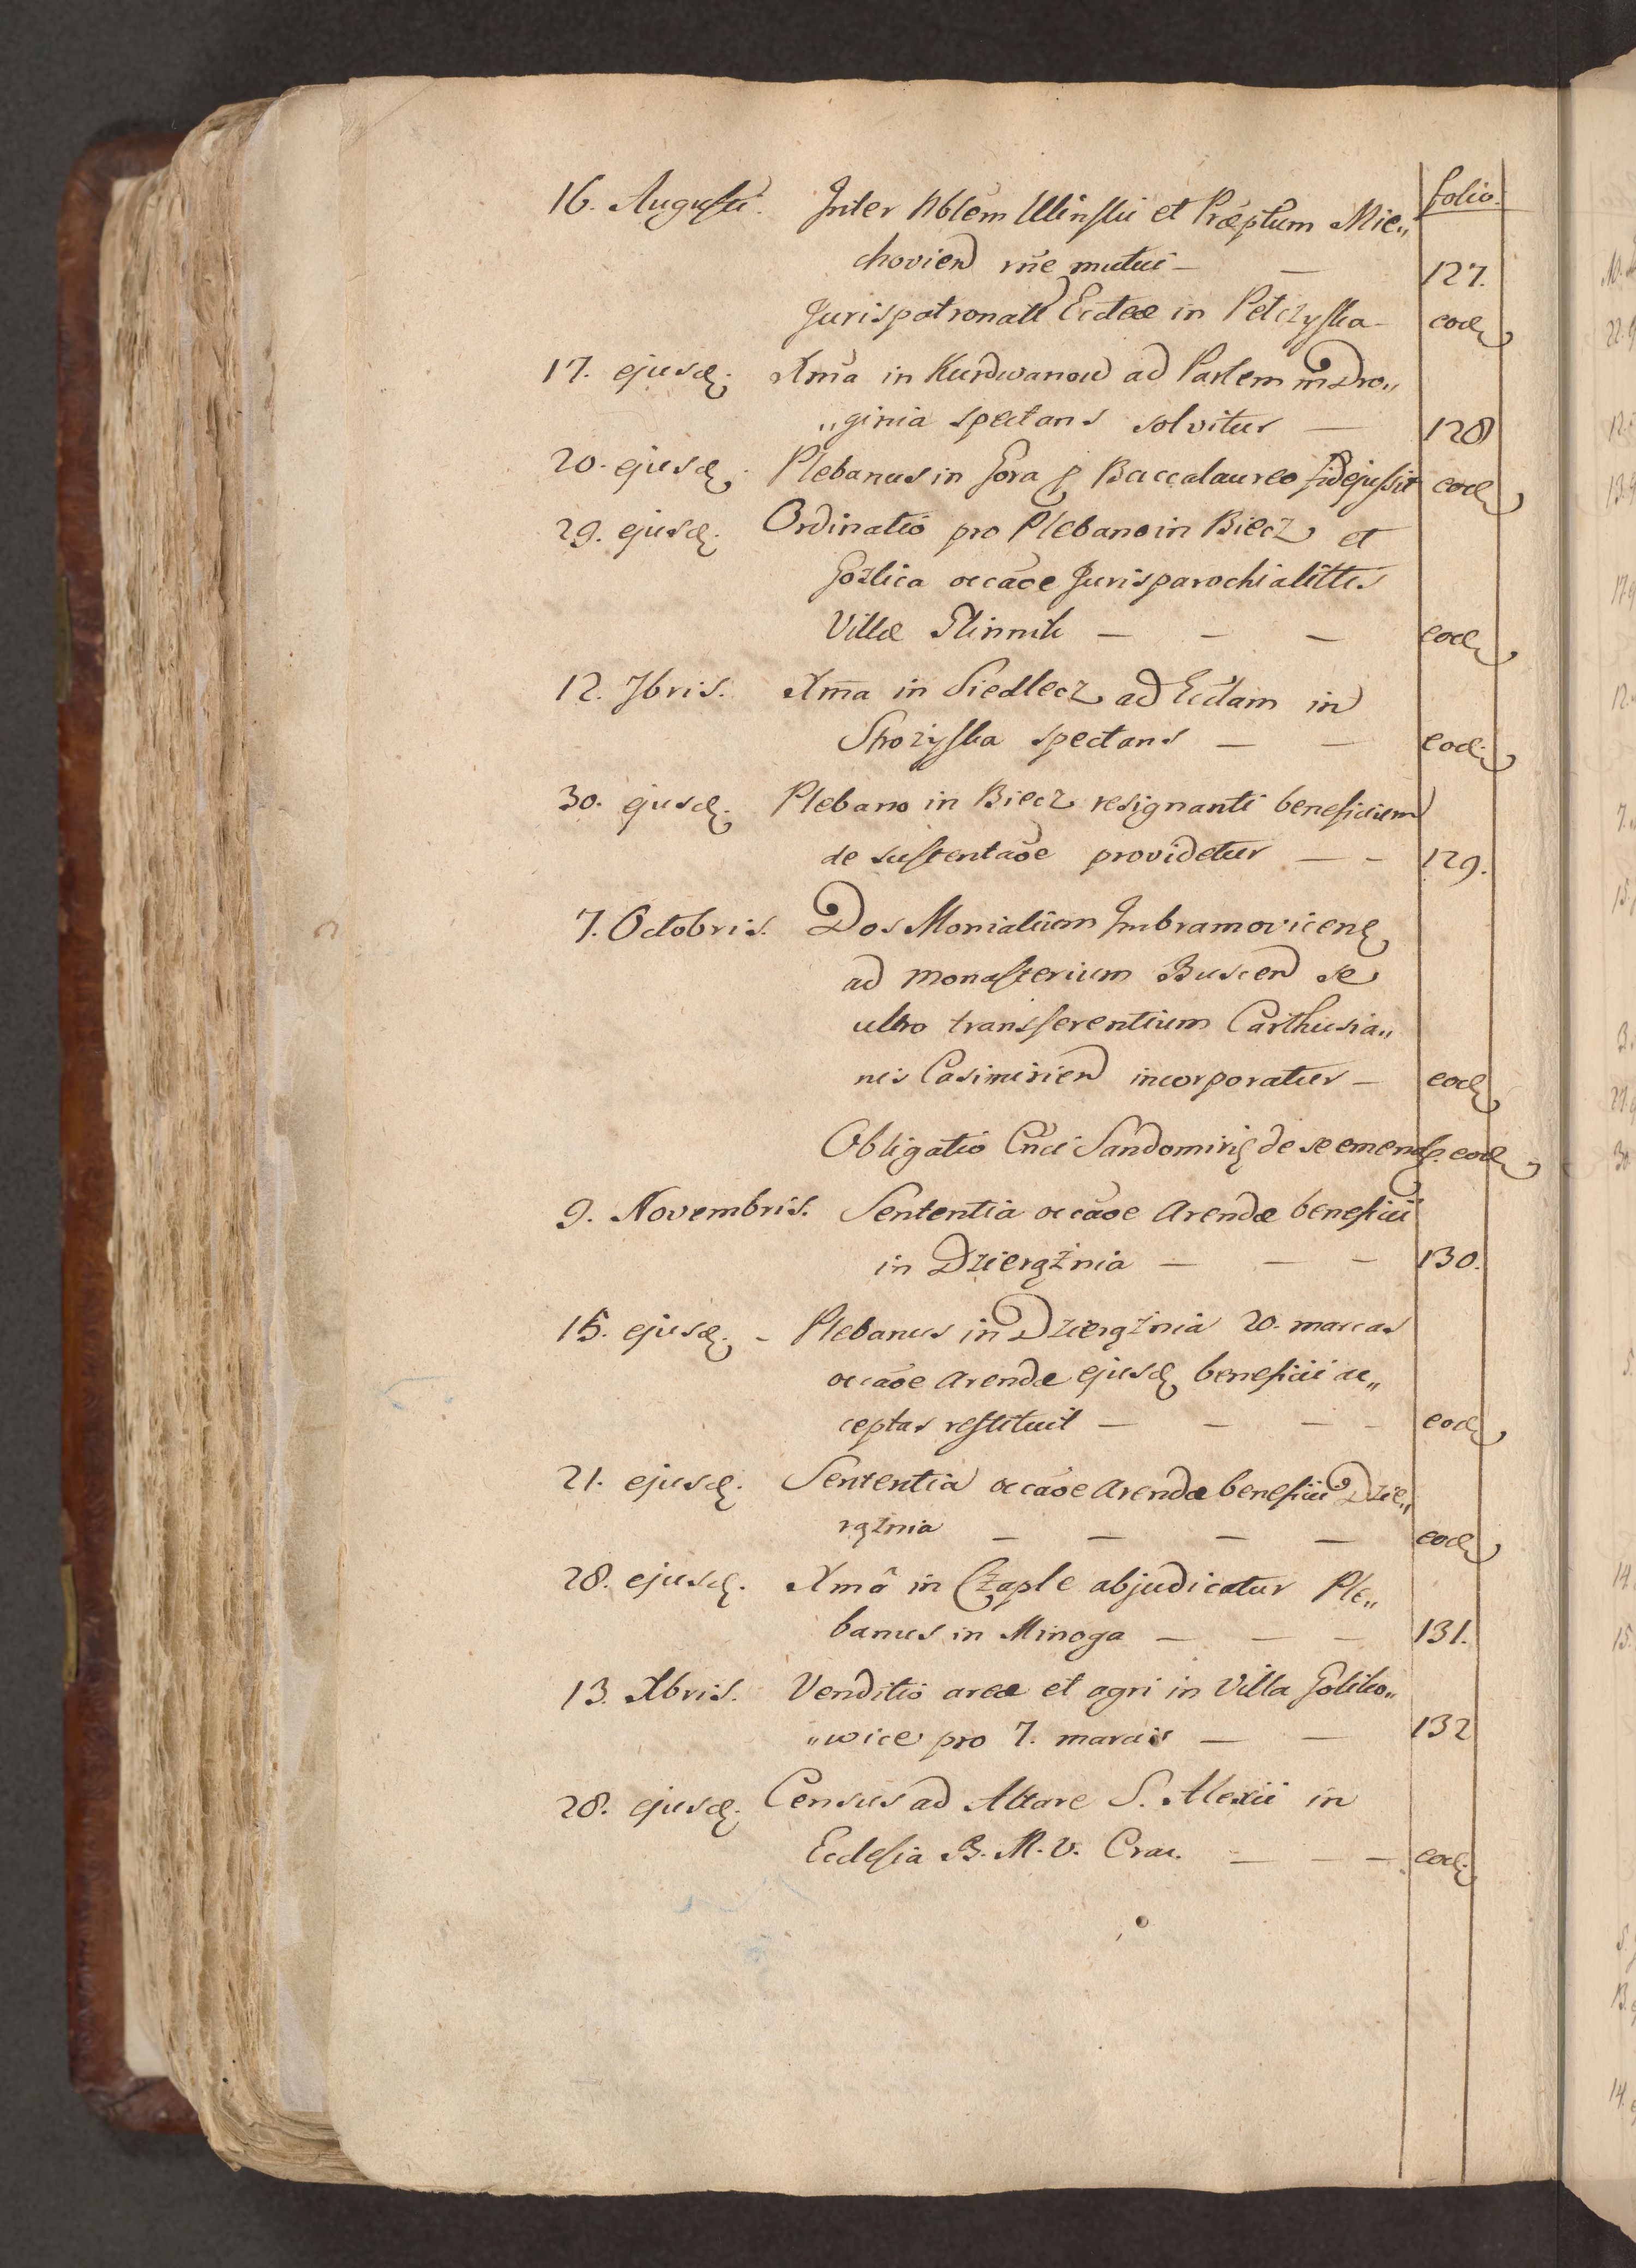 folio.
16. Augusti. Inter Nblem Ulinski et Præptum Mie„
chovien rñe mutui — — 127.
Jurispatronatu Eccleæ in Pelczyska — eod
17. ejusd. Xma in Kurdwanow ad Parlem in Dro„
„ginia spectans solvitur — 128
20. ejusd. Plebanus in Gora p Baccalaureo fidejussit eod
29. ejusd. Ordinatio pro Plebano in Biecz et
Gozlica occaõe Jurisparochialitatis
Villæ — — — eod
12. 7bris. Xma in Siedlecz ad Ecclam in
Skozyska spectans — — eod.
30. ejusd. Plebano in Biecz resignanti beneficium
de sustentaõe providetur — — 129.
7. Octobris. Dos Monialium Imbramovicen
ad Monasterium Buscen se
ultro transferentium Carthusia„
nis Casimirien incorporatur — eod
Obligatio Cnci Sandomiri de se emend. eod
9. Novembris. Sententia occaõe Arendæ beneficii
in Dzierąźnia — — — 130.
15. ejusd. — Plebanus in Dzierąźnia 20. marcas
occaõe Arendæ ejusd beneficii ac„
ceptas restituit — — — — eod
21. ejusd. Sententia occaõe Arendæ beneficii Dzie„
rąźnia — — — — eod
28. ejusd. Xmâ in Czaple abjudicatur Ple„
banus in Minoga — — — 131.
13. Xbris. Venditio areæ et agri in Villa Goliko„
„wice pro 7. marcis — — 132
28. ejusd. Census ad Altare S. Alexii in
Ecclesia B. M. V. Crac. — — — eod.